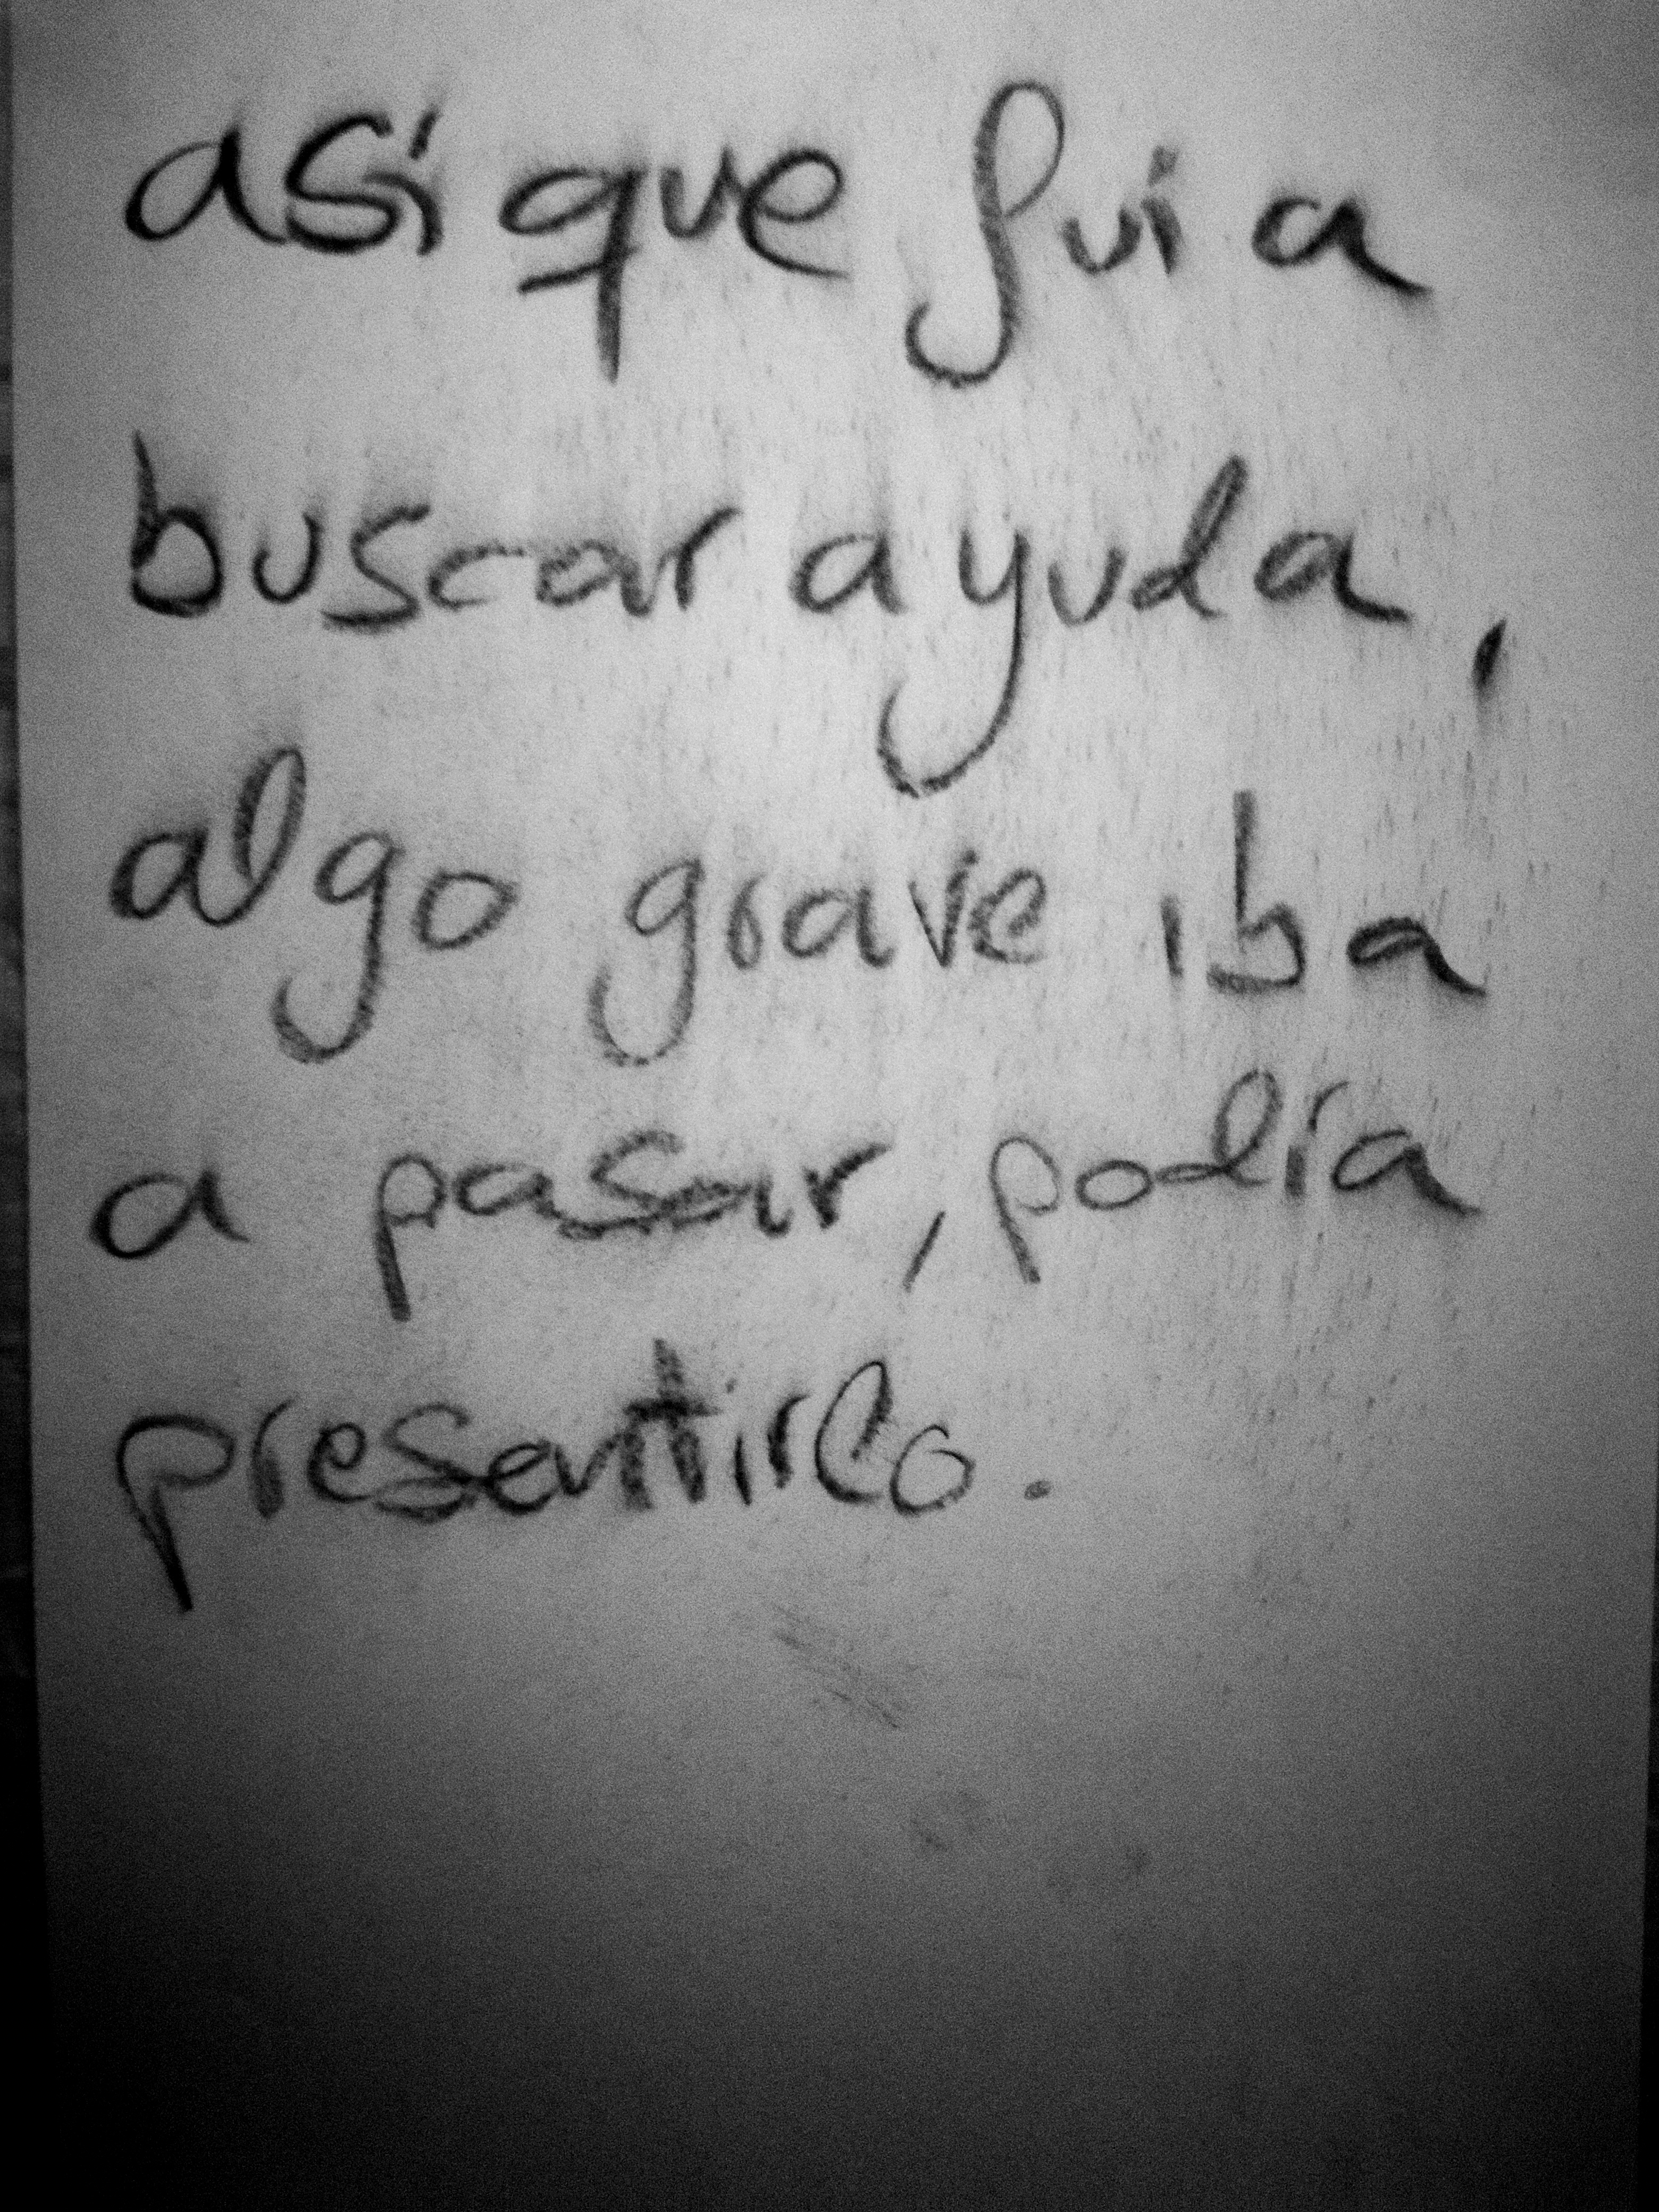 así que fui a
buscar ayuda,
algo grave iba
a pasar, podía
presentirlo.